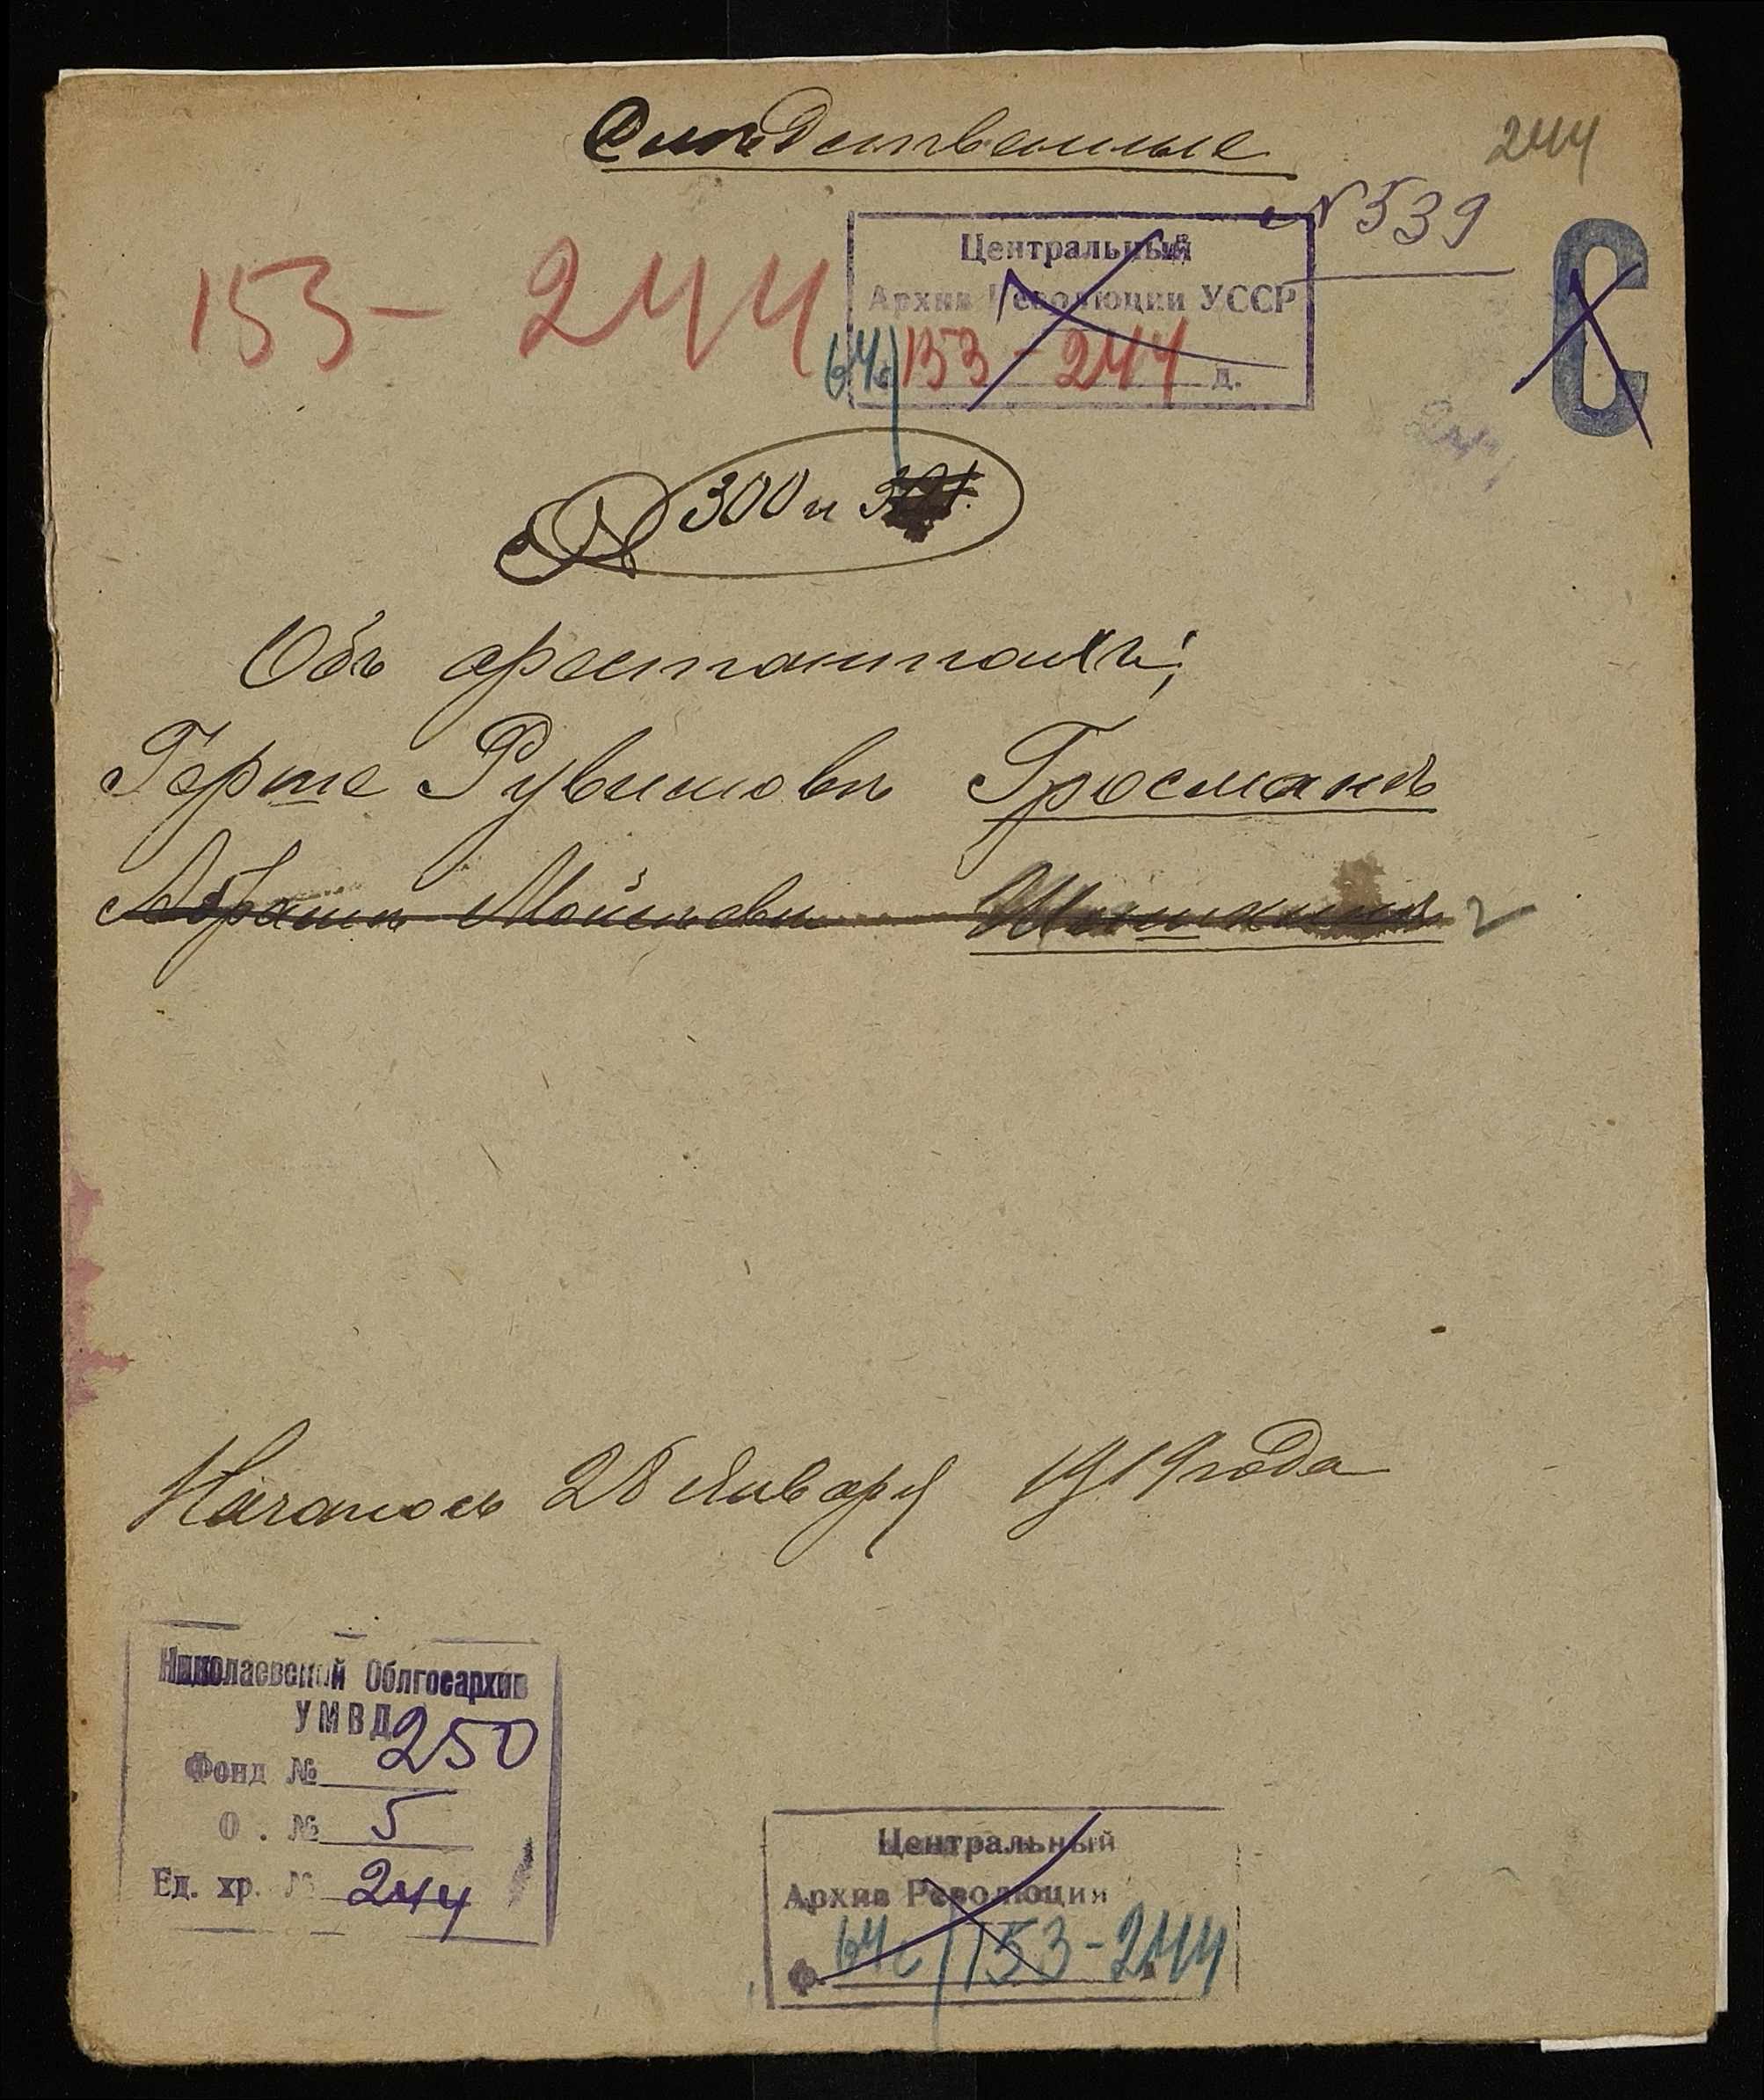 Слѣдственные
244
№ 539
Центральный
Архив Революции УССР
153 - 244
64с/153 - 244 д.
С
300 и 301.
Объ арестантахъ:
Герше Рувимовъ Гросманъ
Абрамъ Мойсеовъ
Началось 28 Января 1919 года
Николаевский Облгосархив
УМВД
Фонд № 250
О. № 5
Ед. хр. № 244
Центральный
Архив Революции
Ф. 64с/153-244